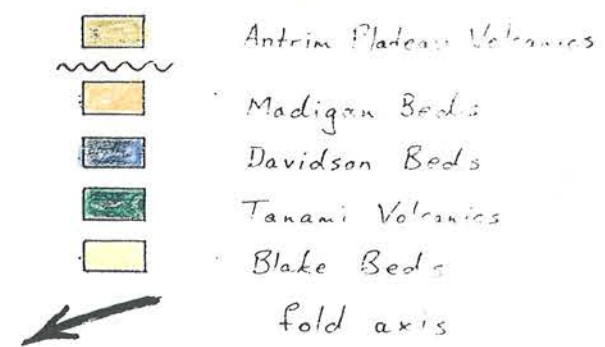 Antrim Plateau Volcanics
Madigan Beds
Davidson Beds
Tanami Volcanics
Blake Beds
fold axis